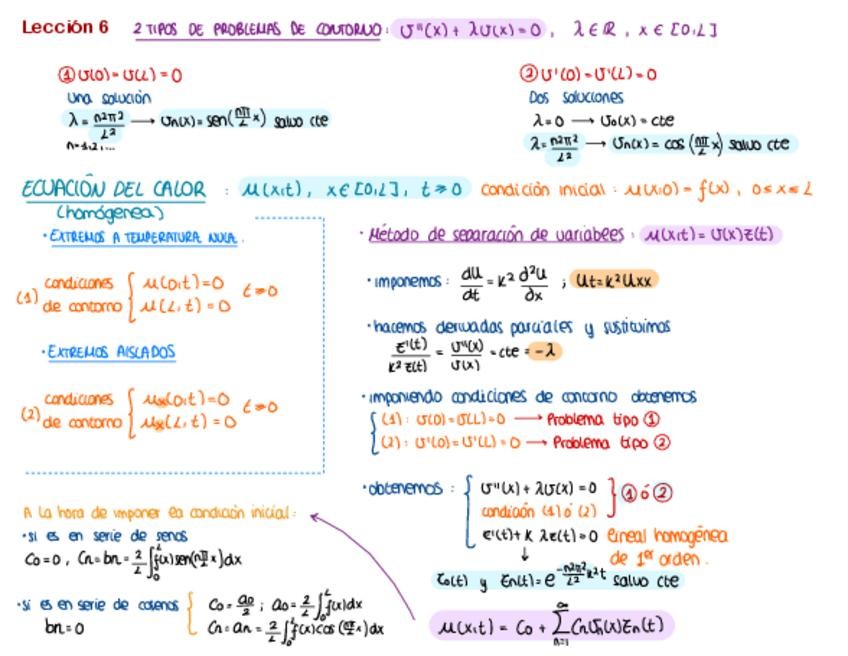 Lección 6 2 TIPOS DE PROBLEMAS DE CONTORNO: v''(x) + λv(x) = 0, λ ∈ ℝ, x ∈ [0,L]
① v(0) = v(L) = 0
Una solución
λ = n²π²/L² → vn(x) = sen(nπ/L x) salvo cte
n=1,2,...
② v'(0) = v'(L) = 0
Dos soluciones
λ = 0 → v₀(x) = cte
λ = n²π²/L² → vn(x) = cos(nπ/L x) salvo cte
ECUACIÓN DEL CALOR : u(x,t), x ∈ [0,L], t ≥ 0 condición inicial: u(x,0) = f(x), 0 ≤ x ≤ L
(homogénea)
· EXTREMOS A TEMPERATURA NULA.
(1) condiciones de contorno { u(0,t) = 0
u(L,t) = 0 t ≥ 0
· EXTREMOS AISLADOS
(2) condiciones de contorno { ux(0,t) = 0
ux(L,t) = 0 t ≥ 0
· Método de separación de variables: u(x,t) = v(x)z(t)
· imponemos: du/dt = k² d²u/∂x ; ut = k² uxx
· hacemos derivadas parciales y sustituimos
z'(t)/k²z(t) = v''(x)/v(x) = cte = -λ
· imponiendo condiciones de contorno obtenemos
(1): v(0) = v(L) = 0 → Problema tipo ①
(2): v'(0) = v'(L) = 0 → Problema tipo ②
· obtenemos: { v''(x) + λv(x) = 0
condición (1) ó (2) } ① ó ②
z'(t) + k λz(t) = 0 lineal homogénea
↓ de 1er orden.
z₀(t) y zn(t) = e^(-n²π²/L² k²t) salvo cte
u(x,t) = C₀ + ∑_(n=1)^∞ Cn vn(x) zn(t)
A la hora de imponer la condición inicial:
· si es en serie de senos
C₀ = 0, Cn = bn = 2/L ∫₀ᴸ f(x) sen(nπ/L x) dx
· si es en serie de cosenos { C₀ = a₀/2 ; a₀ = 2/L ∫₀ᴸ f(x) dx
bn = 0 Cn = an = 2/L ∫₀ᴸ f(x) cos(nπ/L x) dx